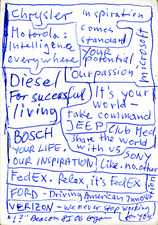 Chrysler inspiration
Motorola: comes
Intelligence standard
everywhere YOUR
potential
Our passion
Microsoft
Diesel
For successful
living
It's your
world—
take command
JEEP Club Med
BOSCH share the world
YOUR LIFE. with us SONY
OUR INSPIRATION! like.no.other
FedEx. Relax, it's FedEx
FORD - Driving American Innovation
VERIZON - we never stop working for you